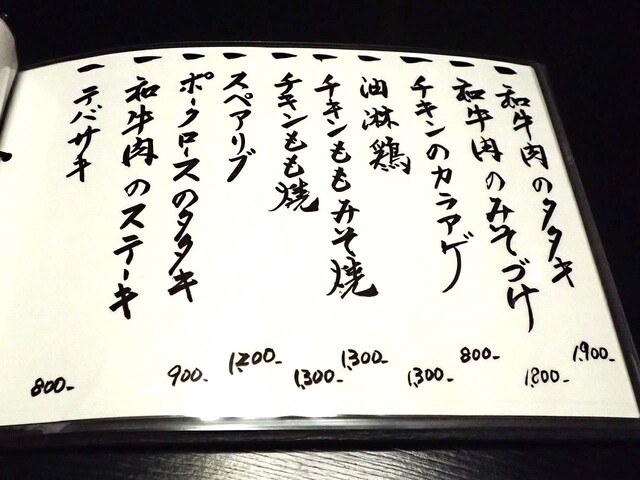 一 和牛肉のタタキ 1,900-
一 和牛肉のみそづけ 1,800-
一 チキンのカラアゲ 800-
一 油淋鶏 1,300-
一 チキンももみそ焼 1,300-
一 チキンもも焼 1,300-
一 スペアリブ 1,200-
一 ポークロースのタタキ 900-
一 和牛肉のステーキ
一 テバサキ 800-